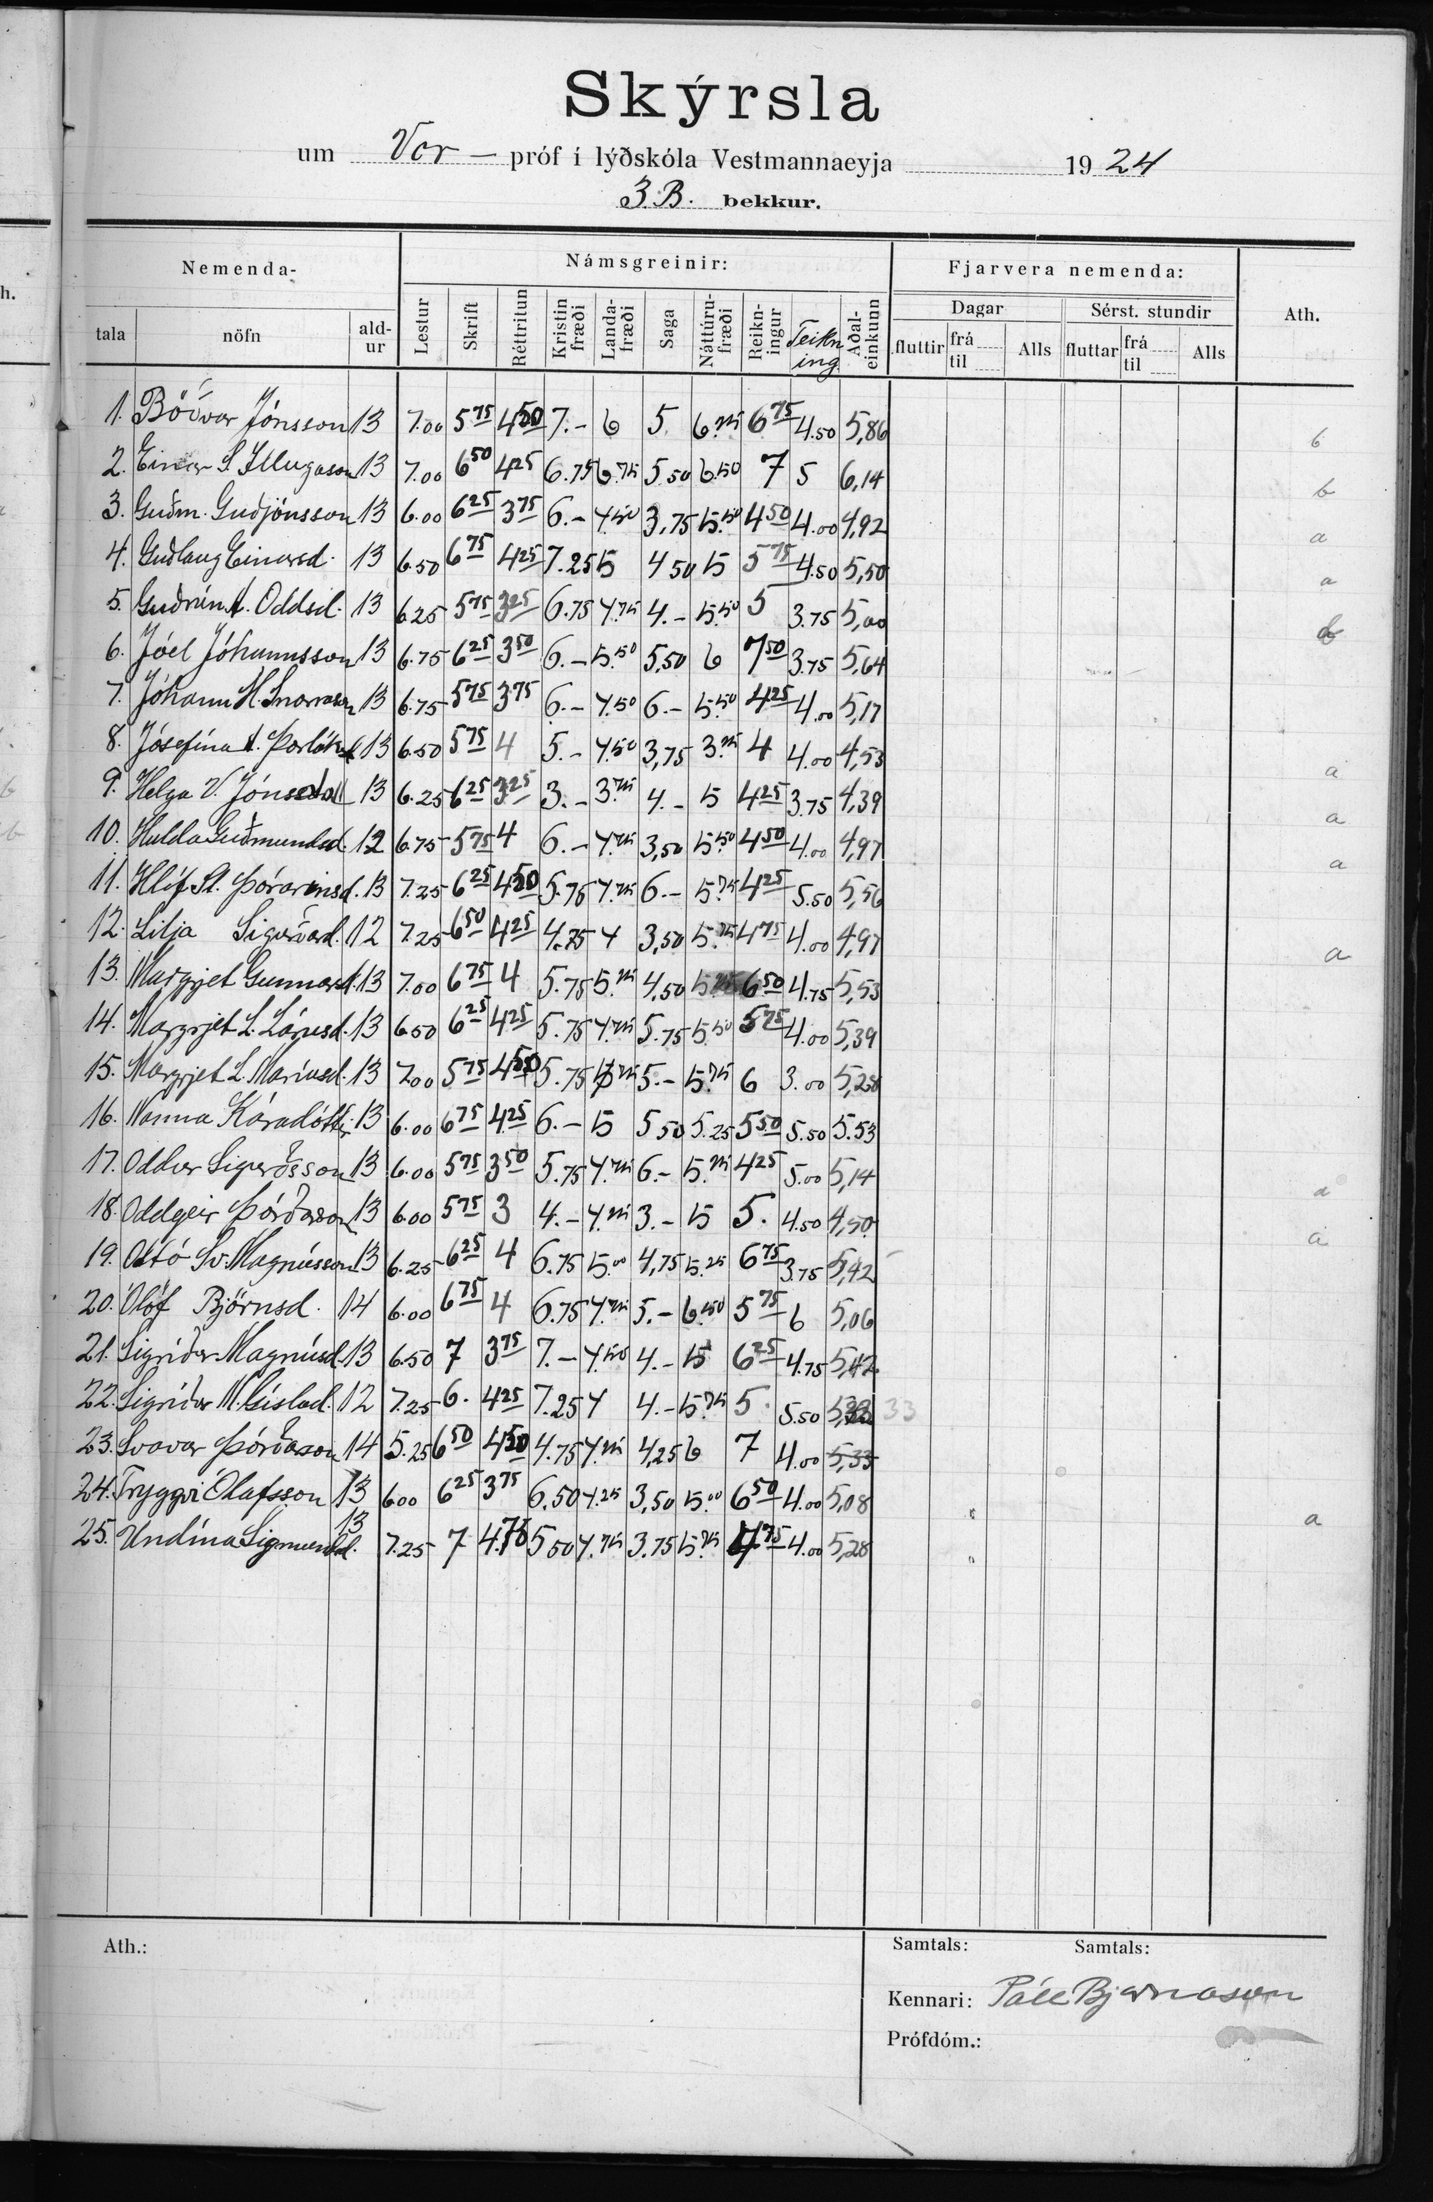 Skýrsla
um Vor - próf í lýðskóla Vestmannaeyja 1924
3.B. bekkur.
Nemenda- Námsgreinir: Fjarvera nemenda: Ath.
tala nöfn ald-ur Lestur Skrift Réttritun Kristin fræði Landa-fræði Saga Náttúru-fræði Reikn-ingur Teikn ing Aðal-einkunn Dagar Sérst. stundir
fluttir frá til Alls fluttar frá til Alls
1. Böðvar Jónsson 13 7.00 5 75 4 50 7.- 6 5 6.75 6 75 4.50 5,86 b
2. Einar S Illugason 13 7.00 6 50 4 25 6.75 6.75 5.50 6.50 7 5 6,14 b
3. Guðm. Guðjónsson 13 6.00 6 25 3 75 6.- 4.50 3,75 5.50 4 50 4.00 4,92 a
4. Guðlaug Einarsd. 13 6.50 6 75 4 25 7.25 5 4 50 5 5 75 4.50 5,50 a
5. Guðrún Á. Oddsd. 13 6.25 5 75 3 25 6.75 4.75 4.- 5.50 5 3.75 5,00 b
6. Jóel Jóhannsson 13 6.75 6 25 3 50 6.- 5.50 5,50 6 7 50 3.75 5,64
7. Jóhann H. Snorrason 13 6.75 5 75 3 75 6.- 4.50 6.- 5.50 4 25 4.00 5,17
8. Jósefína Á. Þorláksd 13 6.50 5 75 4 5.- 4.50 3,75 3.75 4 4.00 4,53 a
9. Helga V. Jónsd 13 6.25 6 25 3 25 3.- 3.75 4.- 5 4 25 3.75 4,39 a
10. Hulda Guðmundsd. 12 6.75 5 75 4 6.- 4.75 3,50 5.50 4 50 4.00 4,97 a
11. Hlíf St. Þórarinsd. 13 7.25 6 25 4 50 5.75 4.75 6.- 5.75 4 25 5.50 5,56
12. Lilja Sigurðard. 12 7.25 6 50 4 25 4.75 4 3,50 5.75 4 75 4.00 4,97 a
13. Margrjet Gunnarsd. 13 7.00 6 75 4 5.75 5.75 4,50 5.75 6 50 4.75 5,53
14. Margrjet L. Lárusd. 13 6.50 6 25 4 25 5.75 4.75 5.75 5.50 5 75 4.00 5,39
15. Margrjet L. Maríusd. 13 7.00 5 75 4 50 5.75 5.- 5.75 6 3.00 5,28
16. Nanna Káradóttir 13 6.00 6 75 4.25 6.- 5 5 50 5.25 5 50 5.50 5.53
17. Oddur Sigurðsson 13 6.00 5 75 3 50 5.75 4.75 6.- 5.75 4 25 5.00 5,14 a
18. Oddgeir Þórðarson 13 6.00 5 75 3 4.- 4.75 3.- 5 5. 4.50 4,50 a
19. Ottó Sv. Magnússon 13 6.25 6 25 4 6.75 5.00 4,75 5.25 6 75 3.75 5,42
20. Ólöf Björnsd. 14 6.00 6 75 4 6.75 4.75 5.- 6.50 5 75 6 5,06
21. Sigríður Magnúsd. 13 6.50 7 3 75 7.- 4.50 4.- 5 6 25 4.75 5,42
22. Sigríður M. Gíslad. 12 7.25 6. 4 25 7.25 4 4.- 5.75 5 5.50 5,33 33
23. Svavar Þórðarson 14 5.25 6 50 4 50 4.75 4.75 4,25 6 7 4.00 5,33
24. Tryggvi Ólafsson 13 6.00 6 25 3 75 6.50 4.25 3,50 5.00 6 50 4.00 5,08
25. Undína Sigmundsd. 13 7.25 7 4.75 5 50 4.75 3.75 5.75 4 75 4.00 5,28 a
Ath.: Samtals: Samtals:
Kennari: Páll Bjarnason
Prófdóm.: